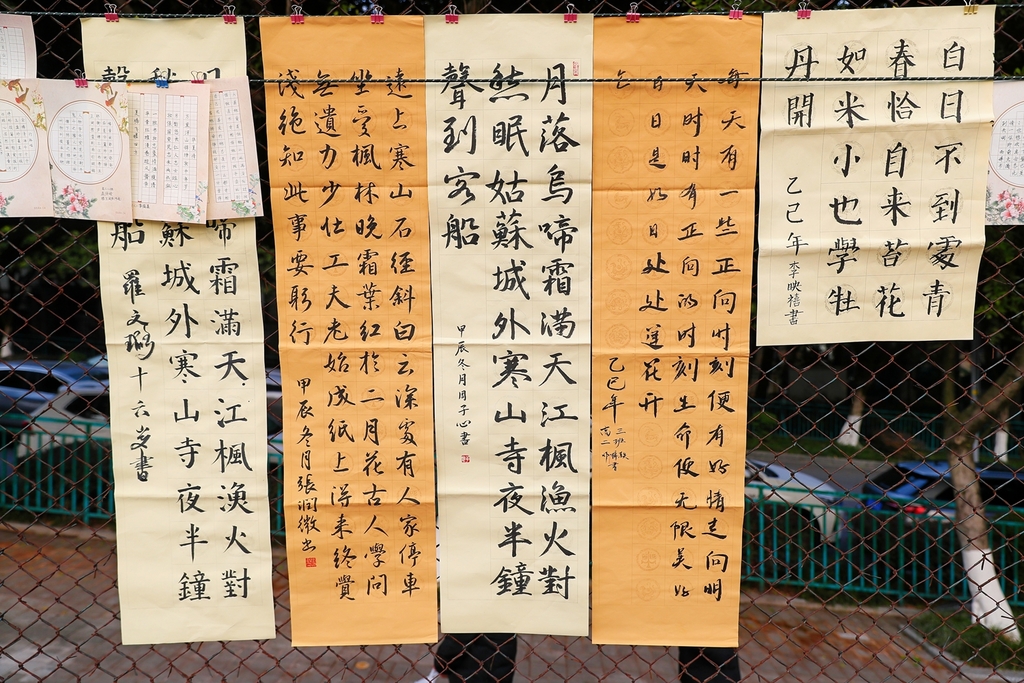 白日不到處青
春恰自來苔花
如米小也學牡
丹開
乙巳年 李映禧書
每天有一些正向时刻便有好情走向明
天时时有正向的时刻生命便无限美好
日日是好日处处莲花开
乙巳年
高二 三班
月落烏啼霜滿天江楓漁火對
愁眠姑蘇城外寒山寺夜半鐘
聲到客船
甲辰冬月周子心書
遠上寒山石徑斜白云深處有人家停車
坐愛楓林晚霜葉紅於二月花古人學問
無遺力少壯工夫老始成紙上得来終覺
淺絕知此事要躬行
甲辰冬月張润微书
啼霜滿天江楓漁火對
蘇城外寒山寺夜半鐘
船
羅文璐十六岁書